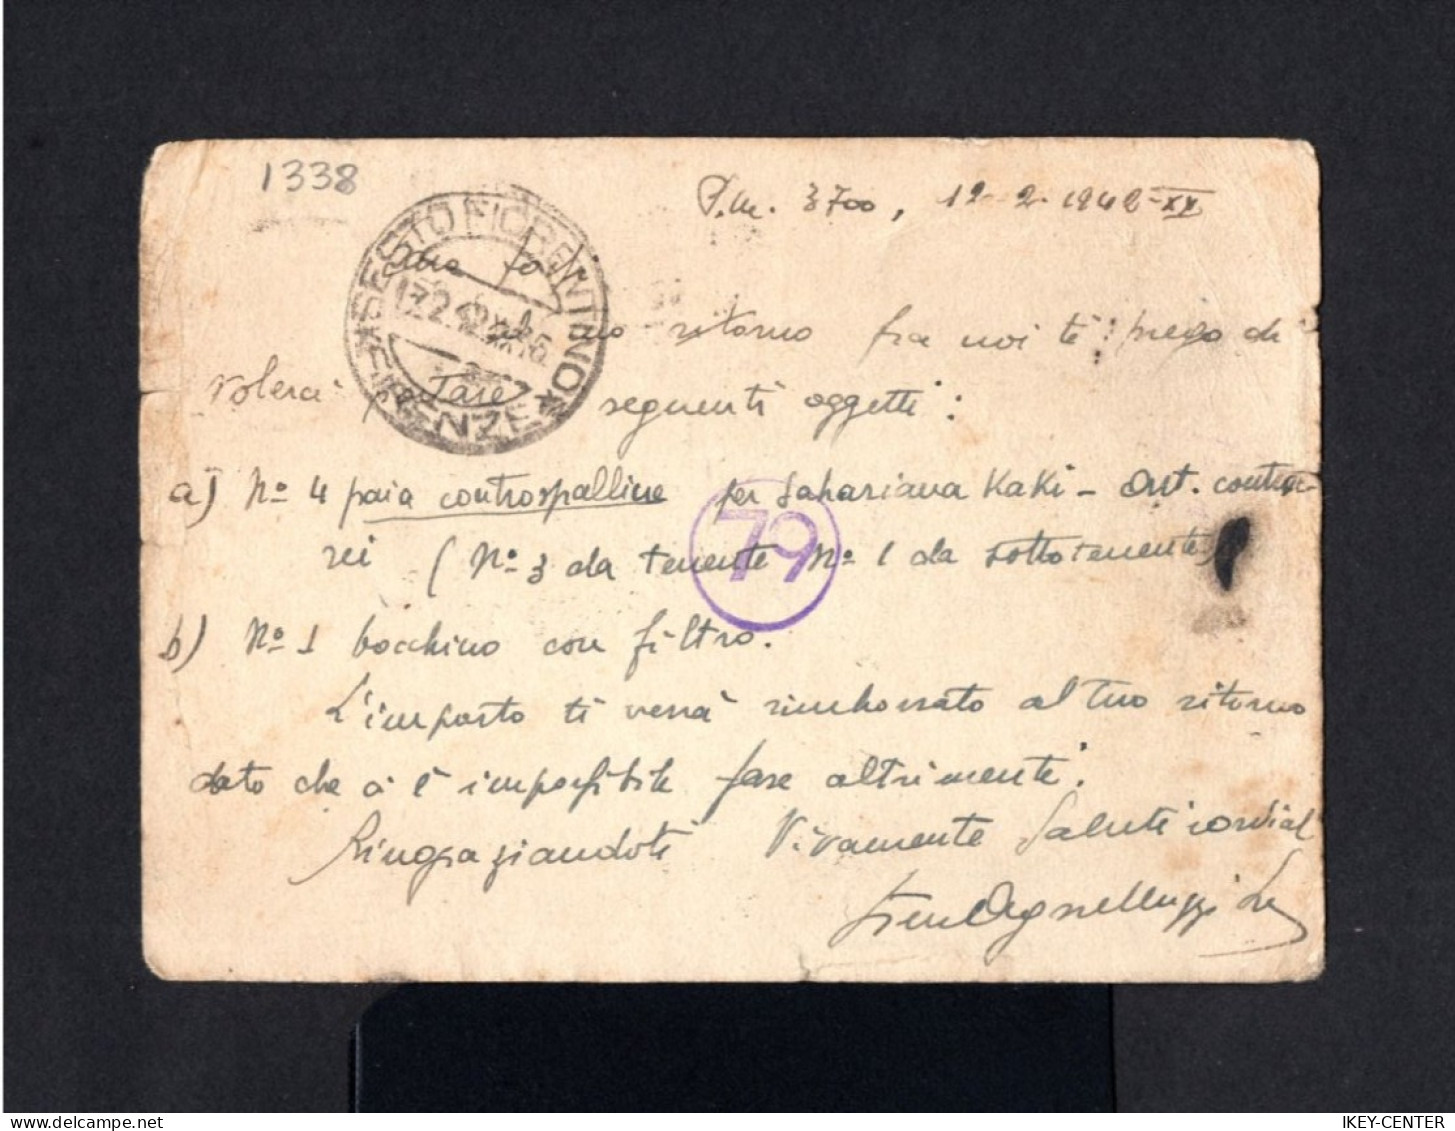 1338
P.M. 3700, 12-2-1942-XX
SESTO FIORENTINO
17.2.42
* FIRENZE *
Caro
tuo ritorno fra noi ti prego di
volerci seguenti oggetti:
a) No 4 paia controspalline per Sahariana Kaki - Art. contrae-
rei (No 3 da tenente No 1 da sottotenente)
79
b) No 1 bocchino con filtro.
L'importo ti verrà rimborsato al tuo ritorno
dato che ci è impossibile fare altrimenti.
Ringraziandoti Vivamente Saluti cordiali
IKEY-CENTER